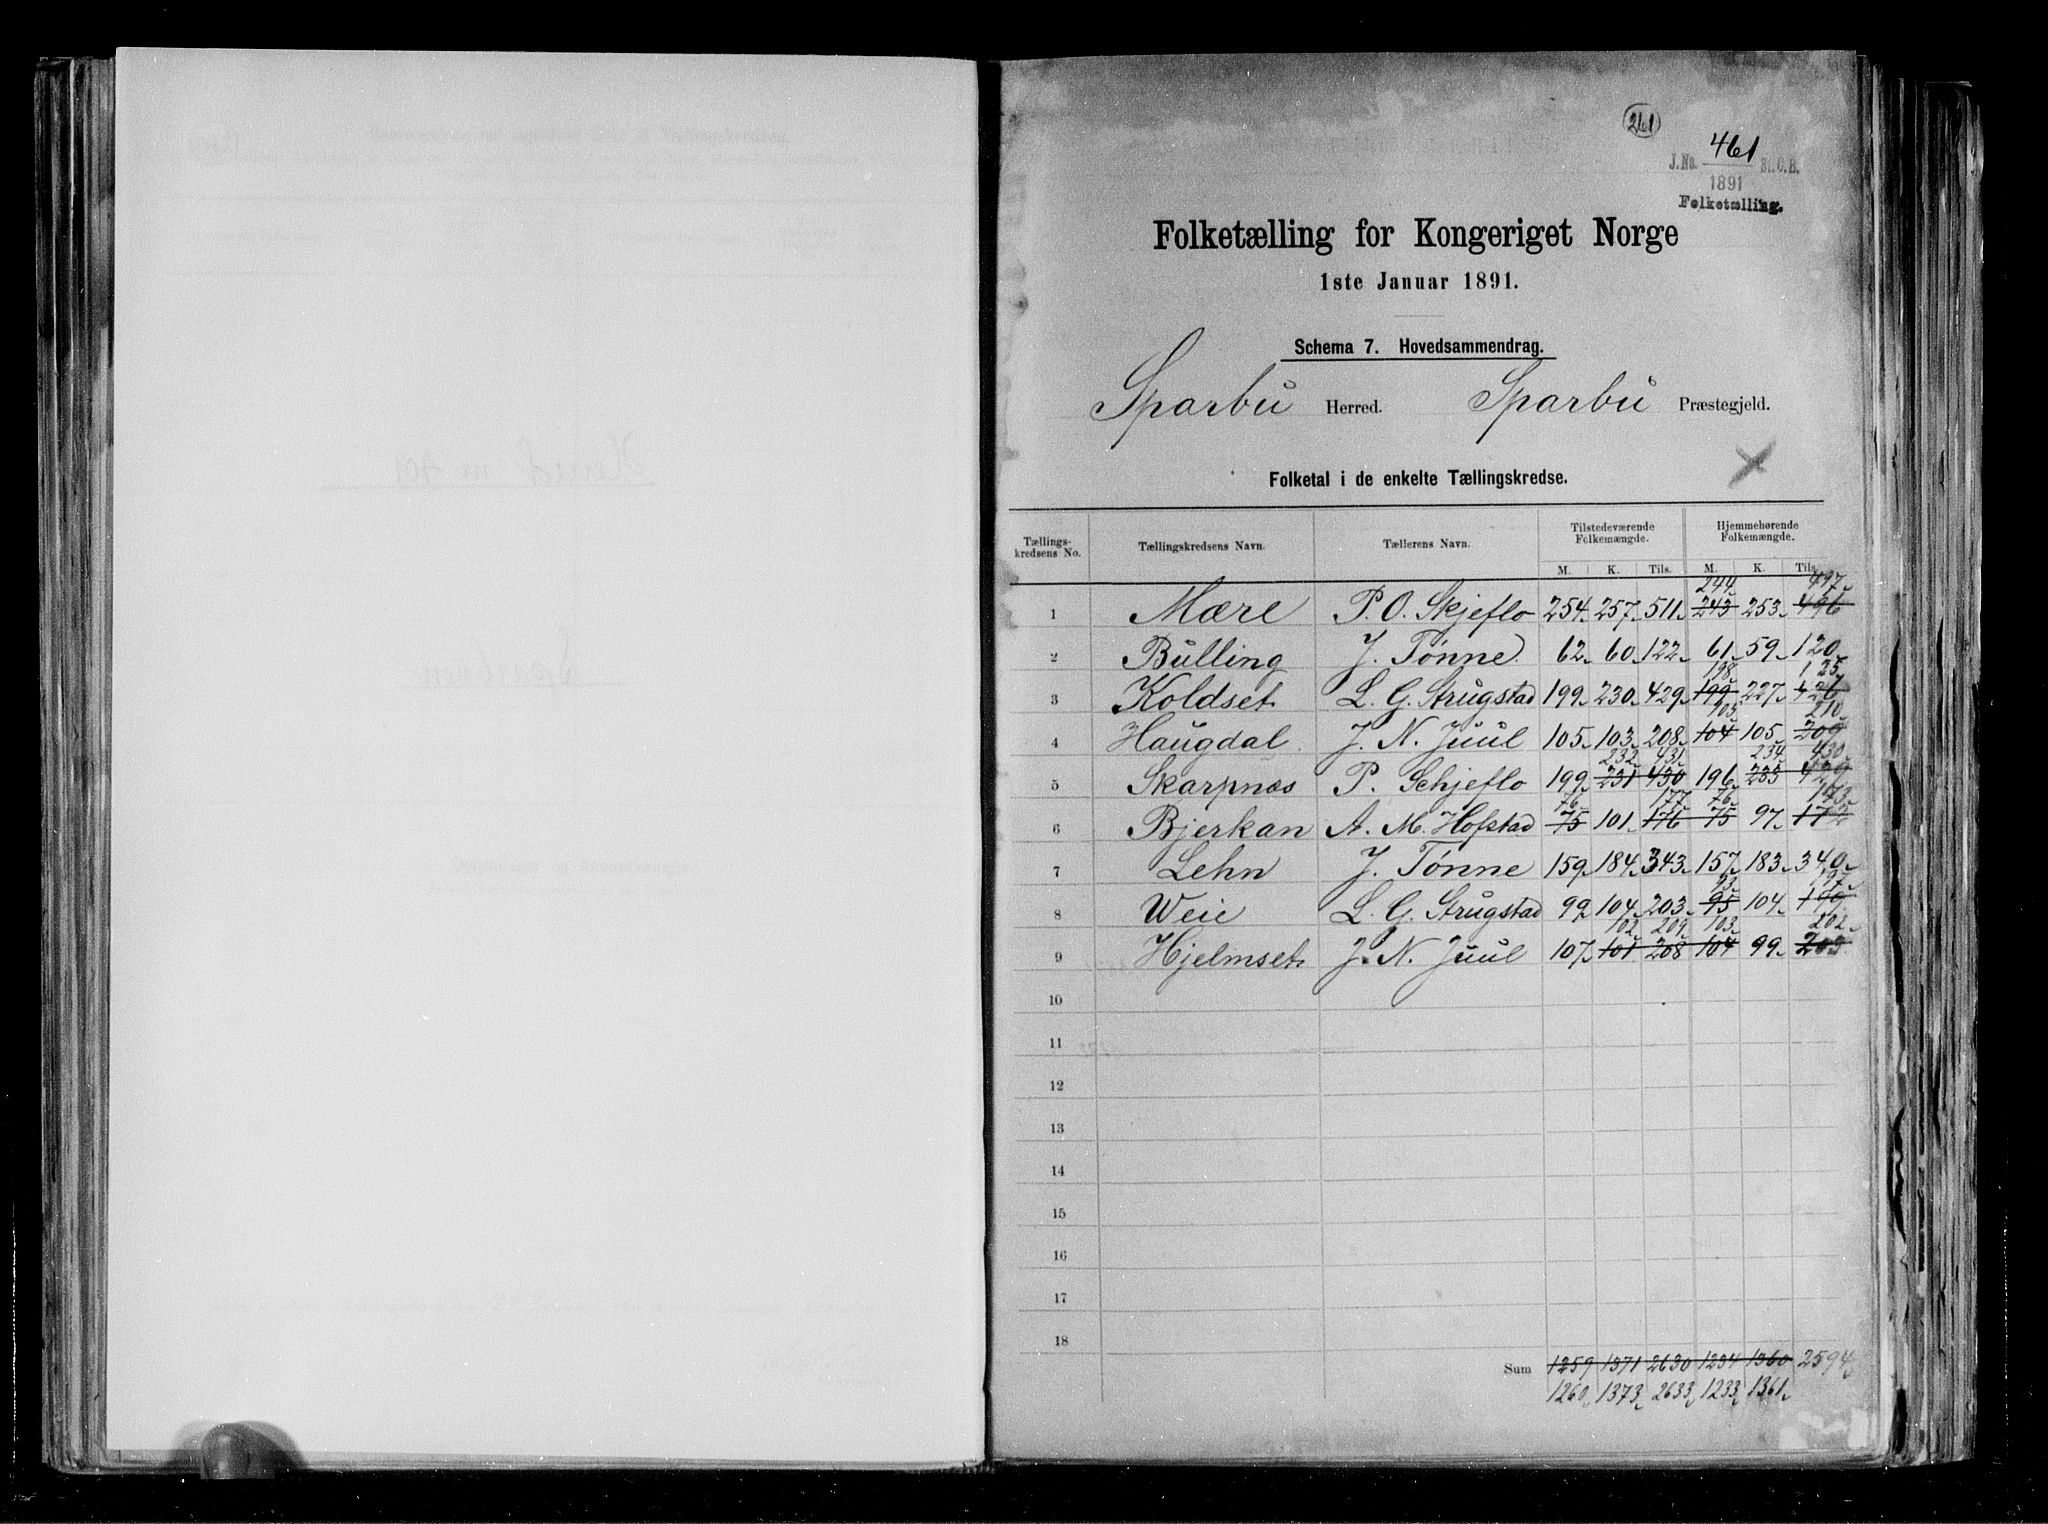 261
461
J.No. St.C.B.
1891
Folketælling.
Folketælling for Kongeriget Norge
1ste Januar 1891.
Schema 7. Hovedsammendrag.
Sparbu Herred. Sparbu Præstegjeld.
Folketal i de enkelte Tællingskredse.
Tællings-kredsens No. Tællingskredsens Navn. Tællerens Navn. Tilstedeværende Folkemængde. Hjemmehørende Folkemængde.
M. K. Tils. M. K. Tils.
244 497
1 Mære P. O. Skjeflo 254 257 511 243 253 496
2 Bulling J. Tønne 62 60 122 61 59 120
198 425
3 Koldset L. G. Strugstad 199 230 429 199 227 426
105 210
4 Haugdal J. N. Juul 105 103 208 104 105 209
232 431 234 430
5 Skarpnæs P. Schjeflo 199 231 430 196 233 429
76 177 76 173
6 Bjerkan A. M. Hofstad 75 101 176 75 97 172
7 Lehn J. Tønne 159 184 343 157 183 340
93 197
8 Weie L. G. Strugstad 99 104 203 95 104 199
102 209 103 202
9 Hjelmset J. N. Juul 107 101 208 104 99 203
10
11
12
13
14
15
16
17
18
Sum 1259 1371 2630 1234 1360 2594
1260 1373 2633 1233 1361